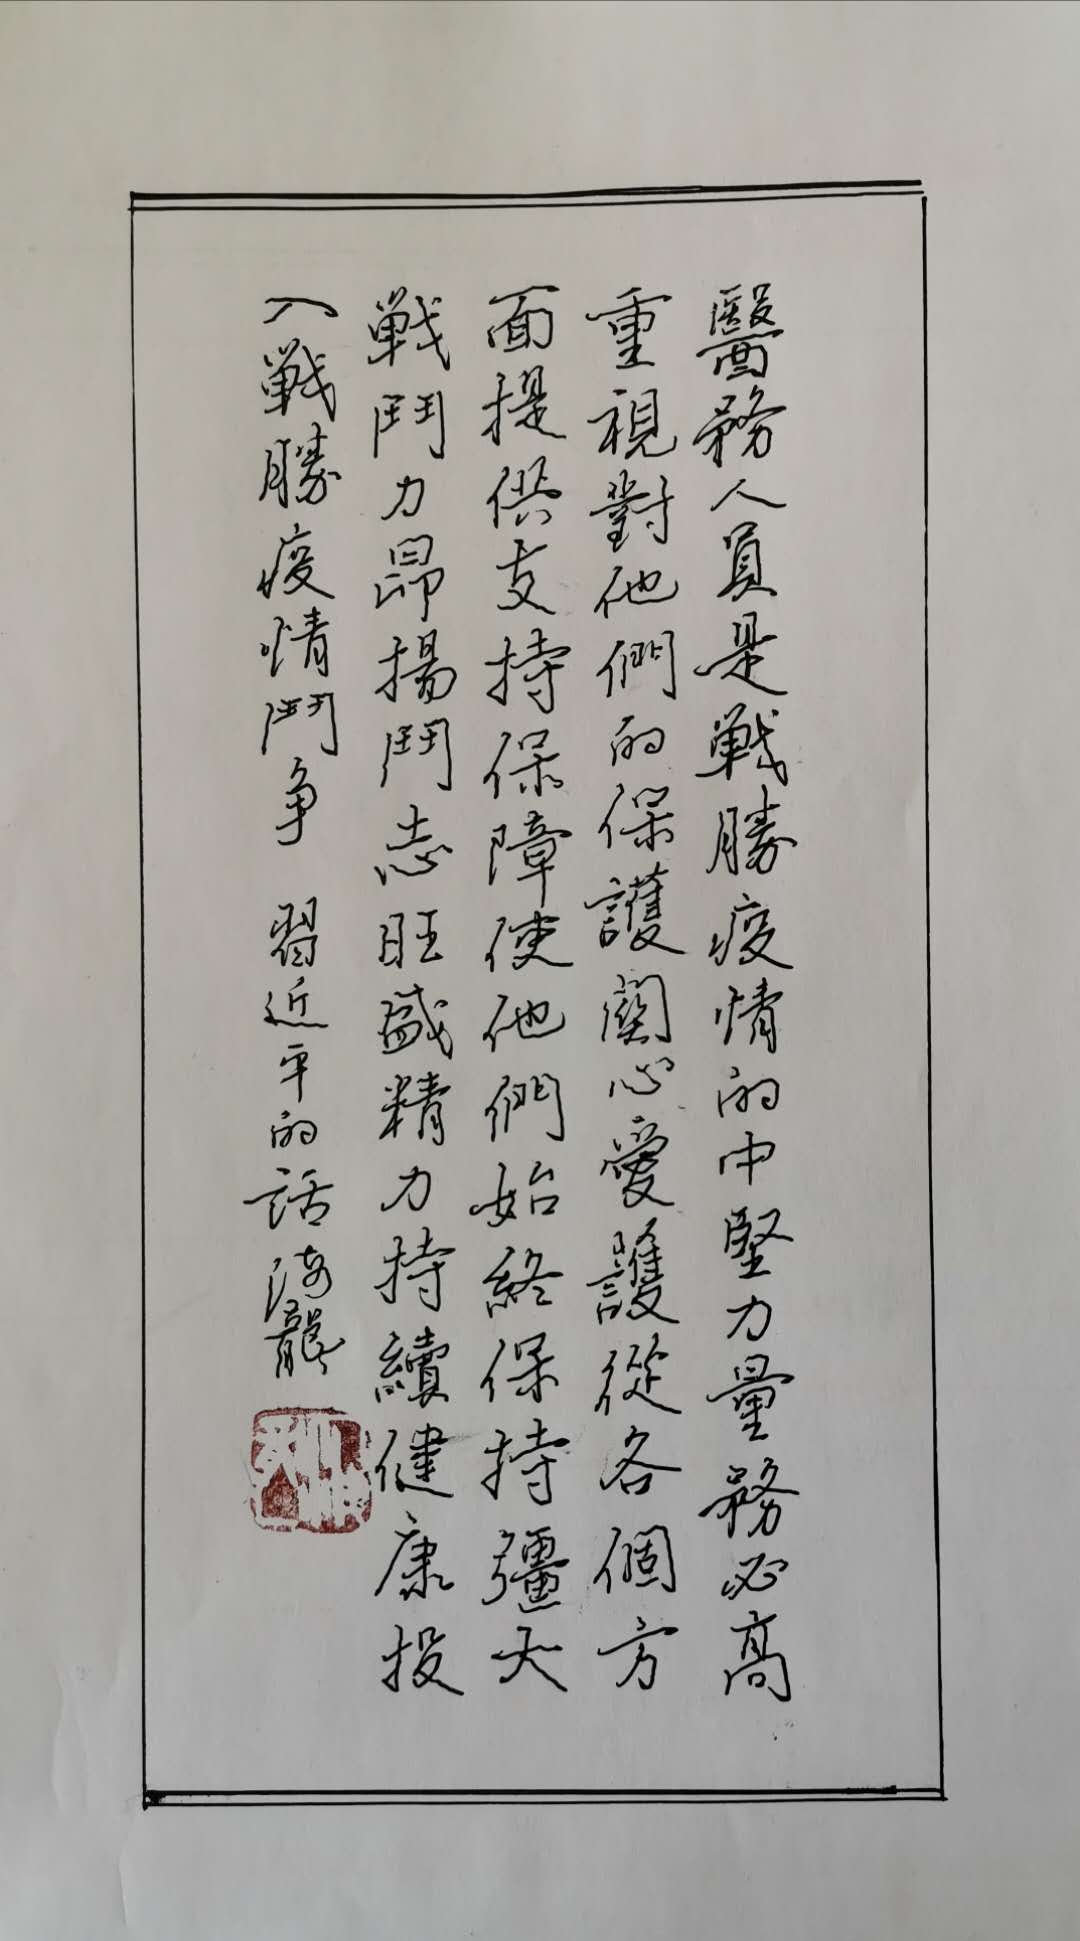 醫務人員是戦勝疫情的中堅力量務必高
重視對他們的保護關心愛護從各個方
面提供支持保障使他們始終保持彊大
戦鬥力昂揚鬥志旺盛精力持續健康投
入戦勝疫情鬥争 習近平的話海龍